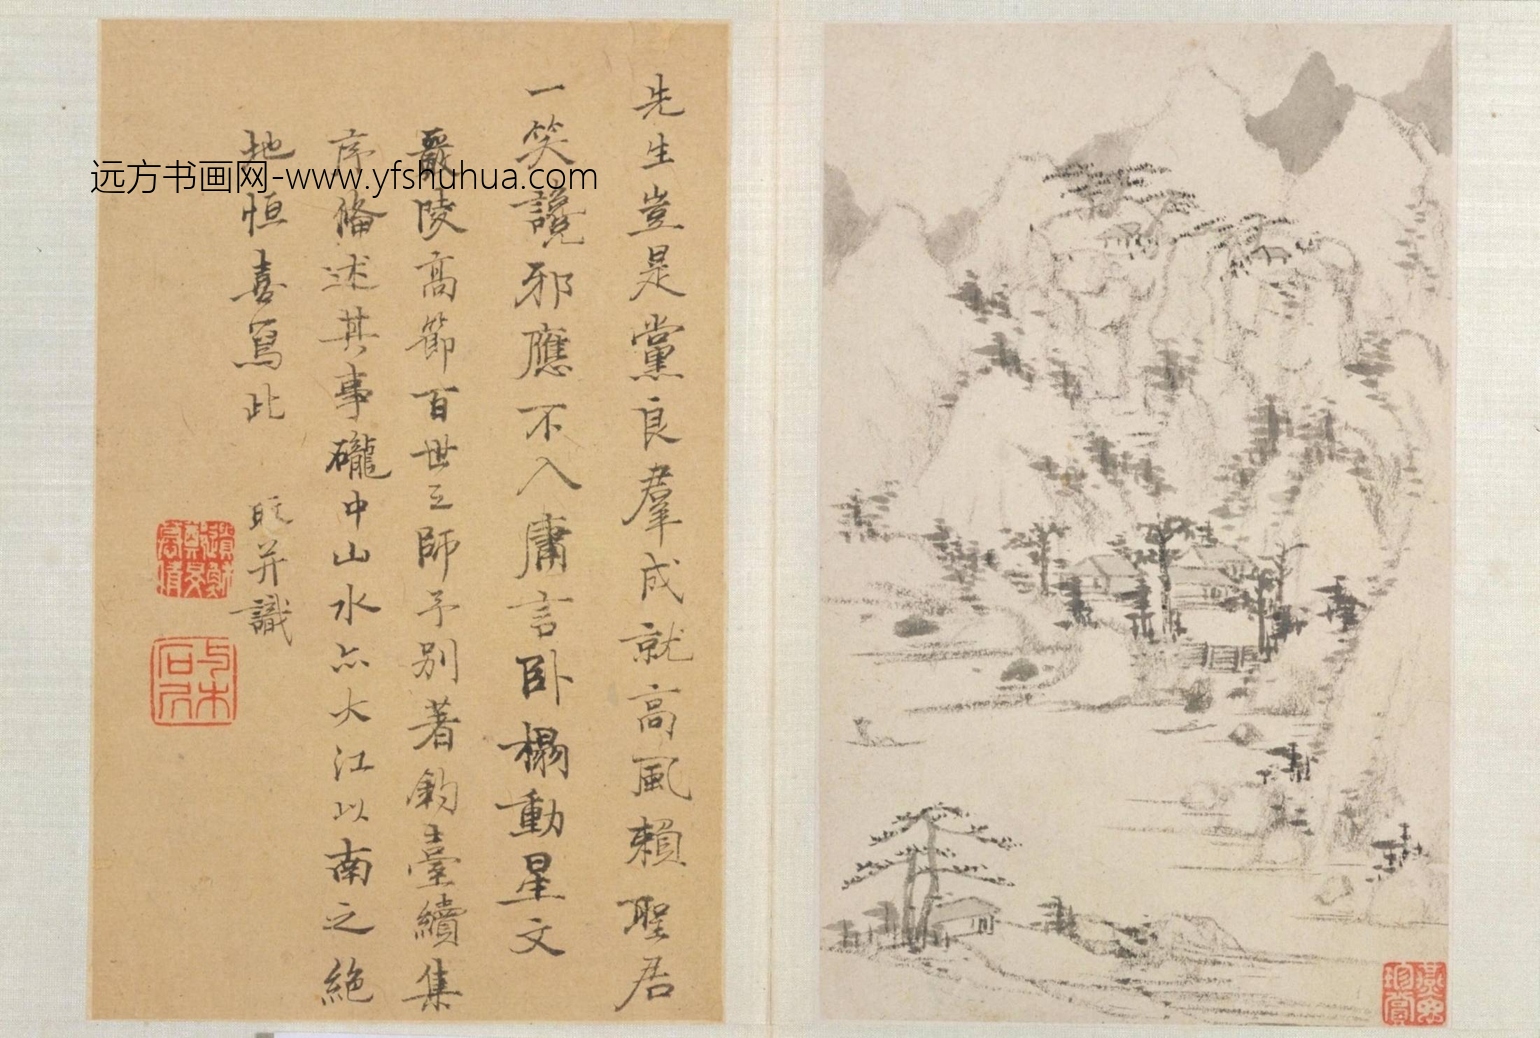 先生豈是黨良羣成就高風賴聖君
一笑讒邪應不入庸言卧榻動星文
嚴陵高節百世之師予別著釣臺續集
序備述其事礲中山水亦大江以南之絶
地恒喜寫此 并識
远方书画网-www.yfshuhua.com